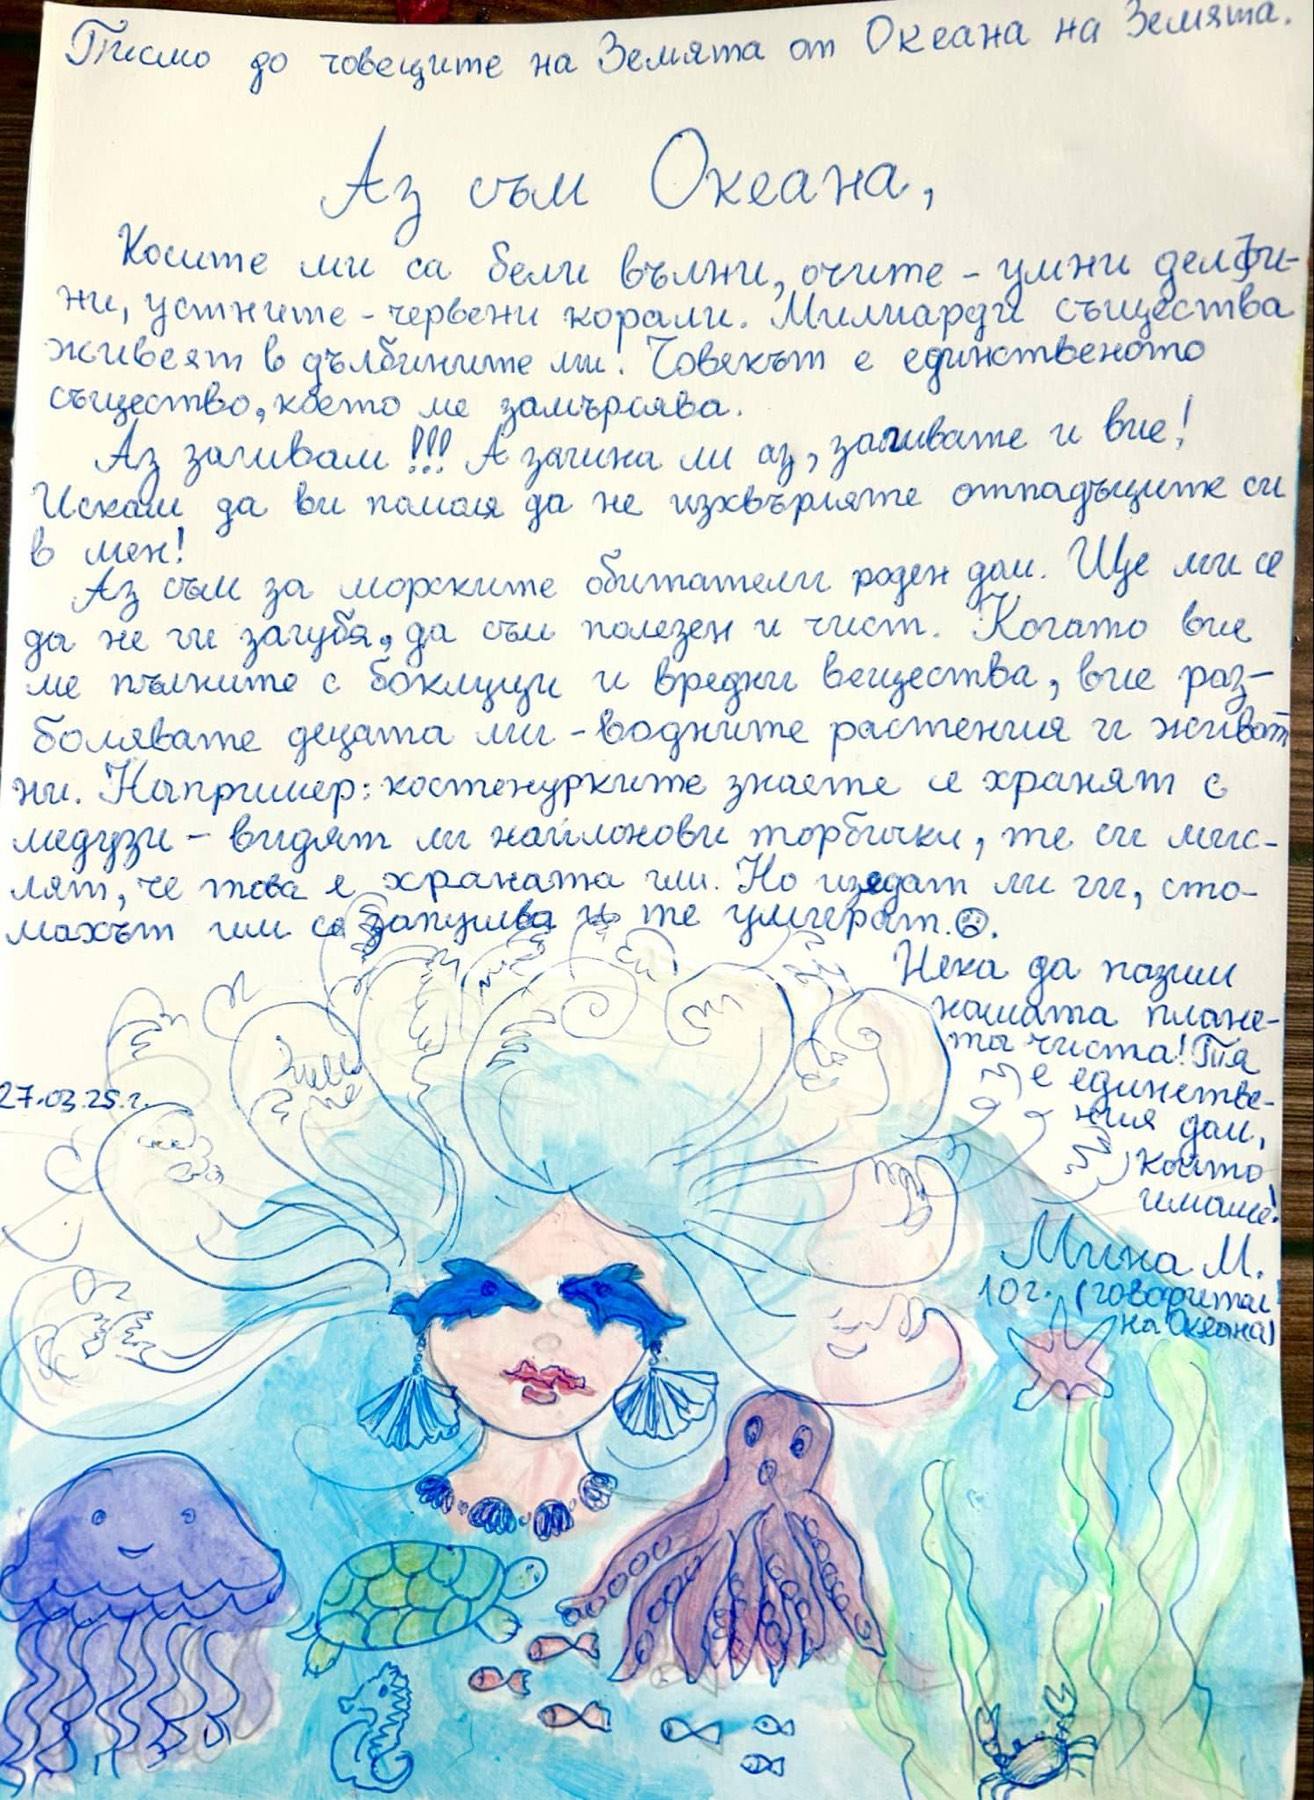 Писмо до човеците на Земята от Океана на Земята.
Аз съм Океана,
Косите ми са бели вълни, очите - умни делфи-
ни, устните - червени корали. Милиарди същества
живеят в дълбините ми! Човекът е единственото
същество, което ме замърсява.
Аз загивам!!! А загина ли аз, загивате и вие!
Искам да ви помоля да не изхвърляте отпадъците си
в мен!
Аз съм за морските обитатели роден дом. Ще ми се
да не ги загубя, да съм полезен и чист. Когато вие
ме пълните с боклуци и вредни вещества, вие раз-
болявате децата ми - водните растения и живот
ни. Например: костенурките знаете се хранят с
медузи - видят ли найлонови торбички, те си мис-
лят, че това е храната им. Но изядат ли ги, сто-
махът им се запушва и те умират.
Нека да пазим
нашата плане-
та чиста! Тя
е единстве-
ния дом,
който
имаме!
27.03.25.г.
Мина М.
10г. (говорител
на Океана)